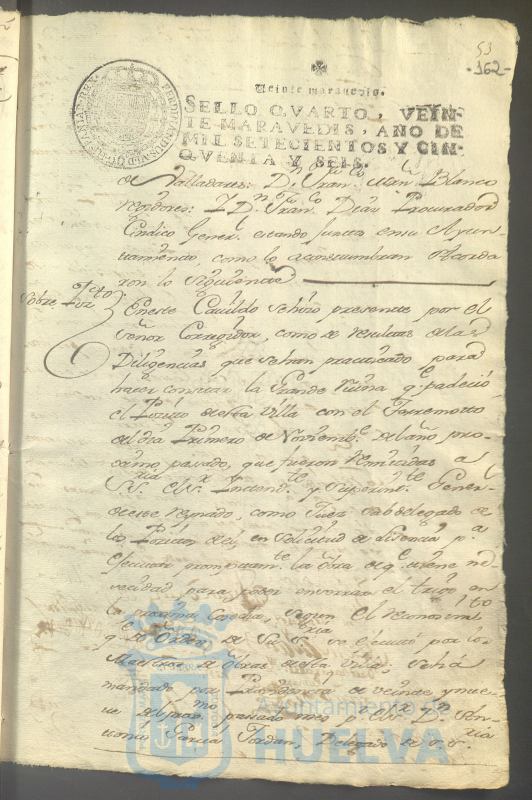 53
-162-
Veinte maravedis.
SELLO QVARTO, VEIN-
TE MARAVEDIS, AÑO DE
MIL SETECIENTOS Y CIN-
QVENTA Y SEIS.
de Valladares: Dn. Franco. Manl. Blanco
Rexidores: Y Dn. Franco. Diaz Procurador
Sindico Gener. estando juntos en su Ayun-
tamiento, como lo acostumbran Acorda
ron lo siguiente
Sobre Pozito
En este Cavildo se hizo presente por el
Señor Corregidor, como de resultas de las
Diligencias que se han practicado para
hacer constar la Grande Ruina q. padeció
el Pozito de esta Villa con el Terremotto
del dia Primero de Noviembe. del año pro-
ximo pasado, que fueron remitidas a
el Sr. Intendte. y Superintte. Gener
de este Reynado, como Juez Subdelegado de
los Pozitos de el, en solicitud de licencia pa.
efectuar promptamte. la obra de q. tiene ne-
cesidad para poder encerrar el trigo en
la proxima Cosecha, segun el reconocimto
q. de Orden de Su Sria. se executó por los
Maestros de Obras de esta Villa, se ha
mandado por Providencia de veinte y nue-
ve del proximo pasado mes pr. el Sr. Dn. An-
tonio Garcia Jordan, Delegado de S. Sria
Ayuntamiento de
HUELVA